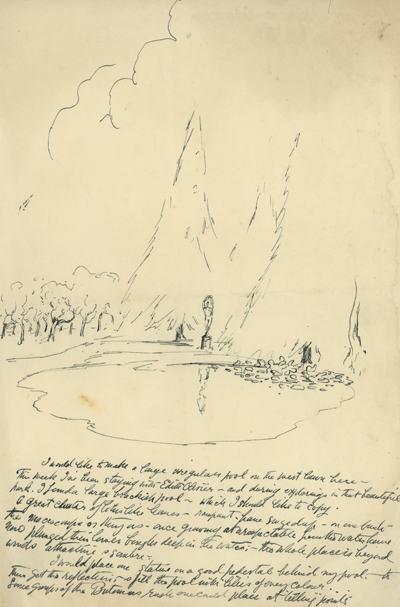 I would like to make a large irregular pool on the west lawn here —
This week I've been staying with Edith Olivier — and during explorings in that beautiful
park. I found a large brackish pool — which I should like to copy.
A great cluster of leaves — rampant — have surged up — on one bank —
the no once growing at a respectable from the water have
now plunged their boughs deep in the water; the whole place is beyond
words attractive
I would place one statue on a good pedestal behind my pool — to
thus get the reflection — & fill the pool with lilies of every colour.
Some groups of the one could place at telling points